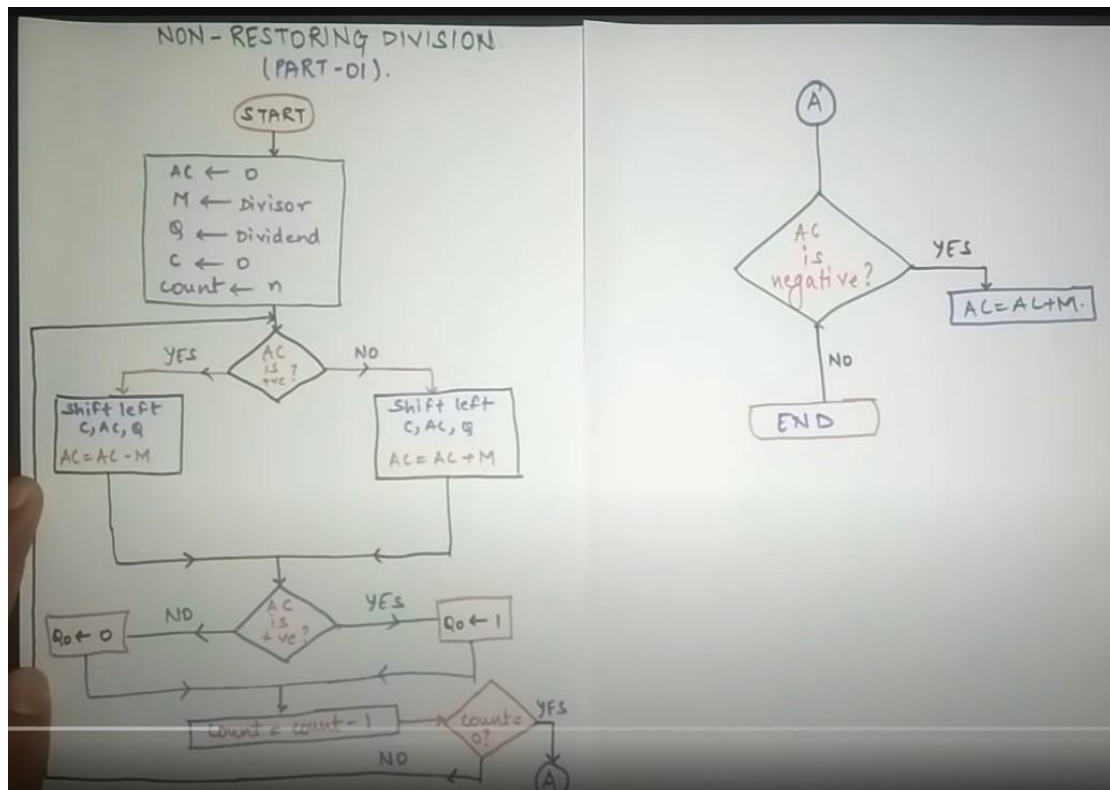 NON-RESTORING DIVISION
(PART-01).
START
AC ← 0
M ← Divisor
Q ← Dividend
C ← 0
count ← n
AC
is
+ve?
YES
NO
Shift left
C, AC, Q
AC = AC - M
Shift left
C, AC, Q
AC = AC + M
AC
is
+ve?
NO
YES
Q0 ← 0
Q0 ← 1
count = count - 1
count =
0?
YES
NO
A
A
AC
is
negative?
YES
AC = AC+M.
NO
END